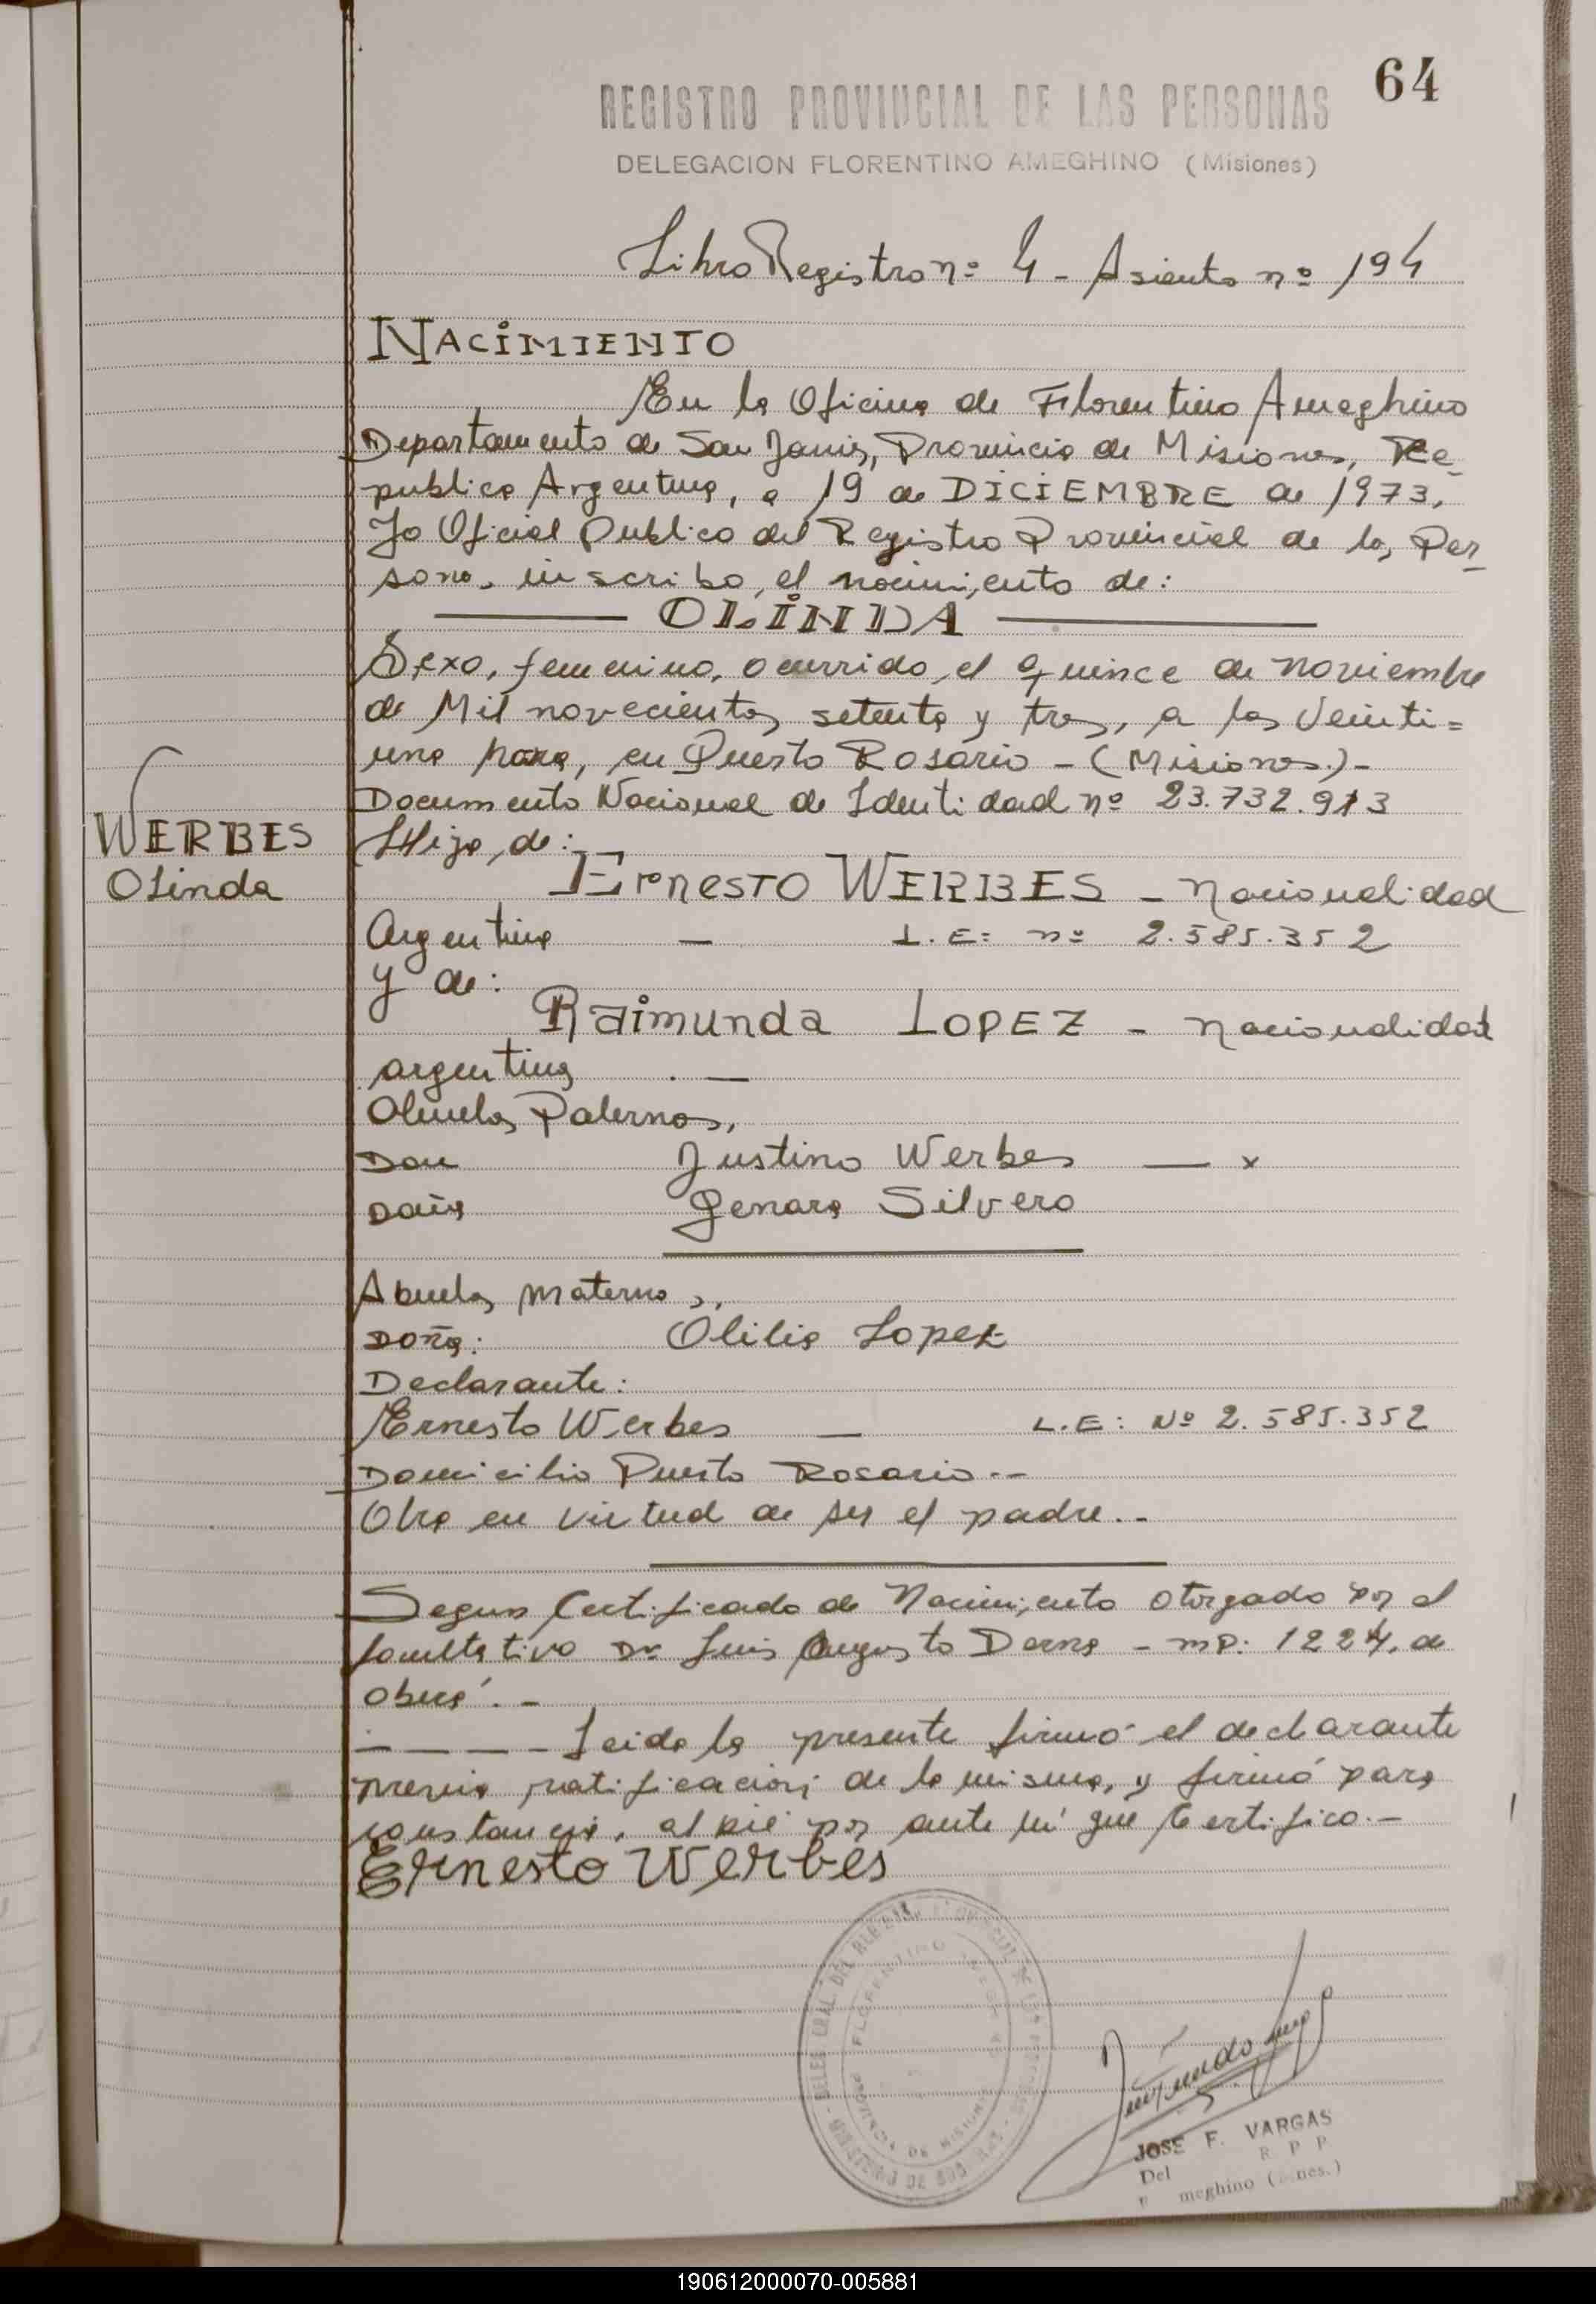 64
REGISTRO PROVINCIAL DE LAS PERSONAS
DELEGACION FLORENTINO AMEGHINO (Misiones)
Libro Registro nº 4 - Asiento nº 194
NACIMIENTO
En la Oficina de Florentino Ameghino
Departamento de San Javier, Provincia de Misiones, Re-
publica Argentina, a 19 de DICIEMBRE de 1973.
Yo Oficial Publico del Registro Provincial de las Per-
sonas, inscribo, el nacimiento de:
OLINDA
Sexo, femenino, ocurrido, el quince de noviembre
de Mil novecientos setenta y tres, a las veinti=
una hora, en Puerto Rosario - (Misiones.) -
Documento Nacional de Identidad nº 23.732.913
WERBES
Olinda
Hija, de:
Ernesto WERBES - nacionalidad
Argentina — L.E: nº 2.585.352
y de:
Raimunda LOPEZ - nacionalidad
argentina . —
Abuelos Paternos,
Don Justino Werbes — x
Doña Genara Silvero
Abuelos maternos,
Doña: Olilia Lopez
Declarante:
Ernesto Werbes — L.E: Nº 2.585.352
Domicilio Puerto Rosario.--
Obra en virtud de ser el padre..-
Segun Certificado de Nacimiento otorgado por el
facultativo Dr Luis Augusto - mp: 1224, de
Oberá. -
- — — — - Leida la presente firmó el declarante
previa ratificación; de la misma, y firmó para
constancia, al pié por ante mí que Certifico.-
Ernesto Werbes
FLORENTINO
PROVINCIA DE MISIONES
JOSE F. VARGAS
Del R P P
meghino ( nes.)
190612000070-005881